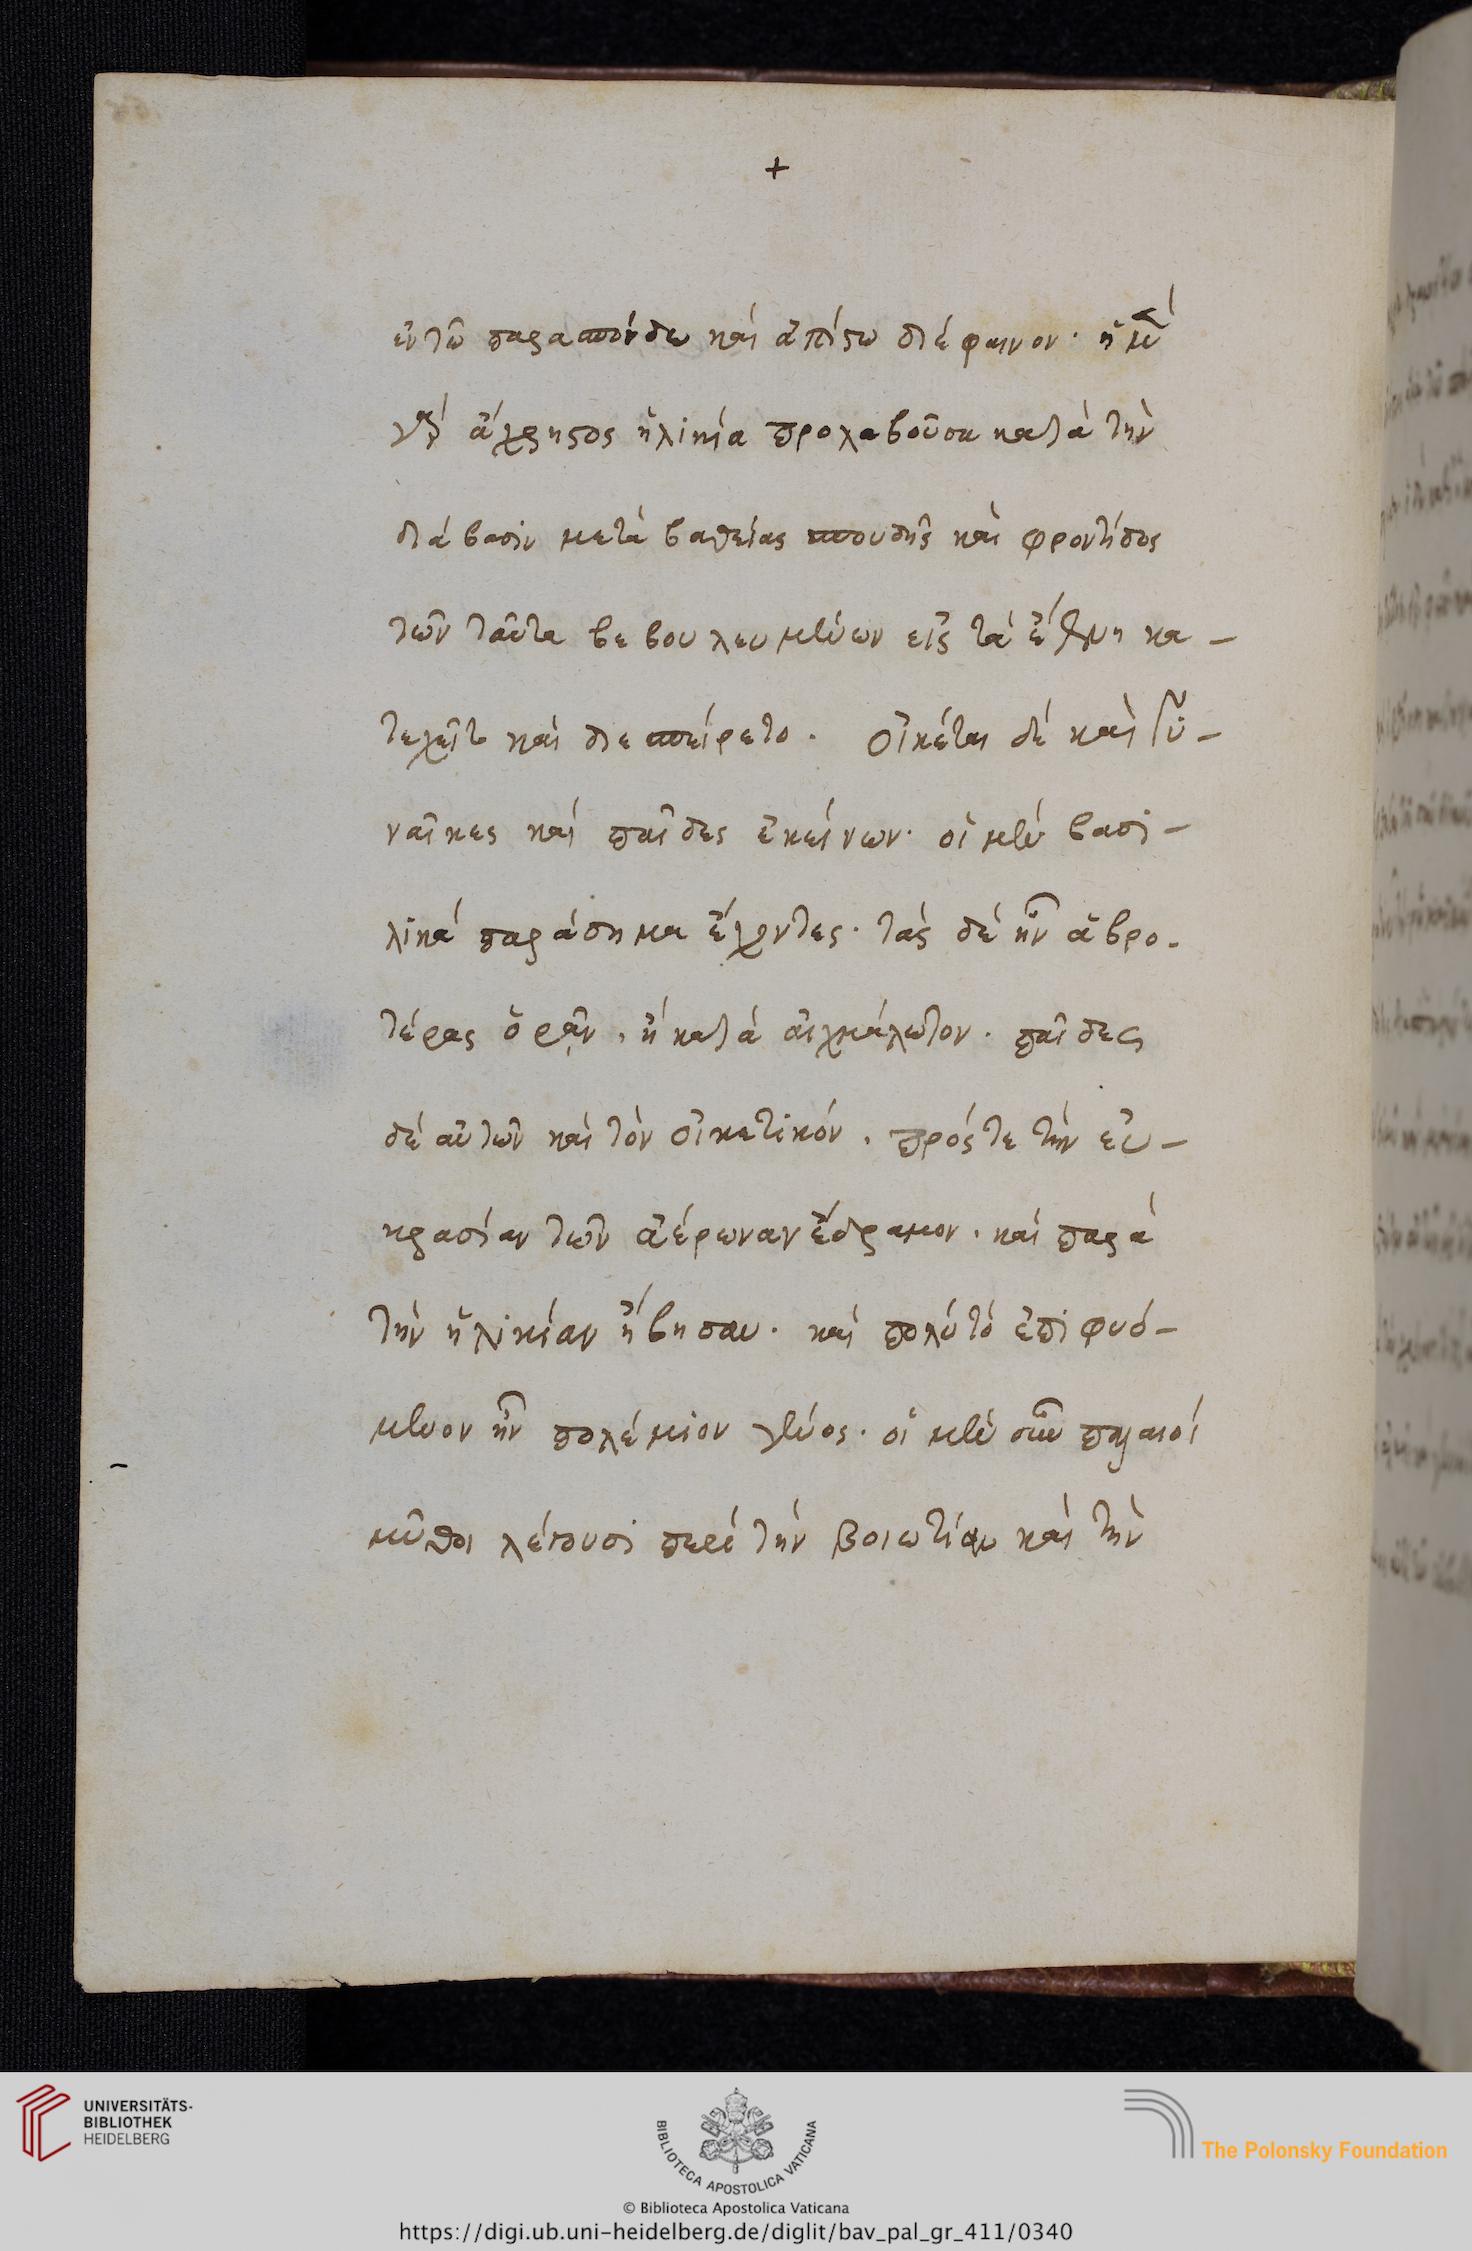 +
ἐν τῶ παρασπόνδω καὶ ἀπίστω διέφαινον· ἡ μὲν
γὰρ ἄχρηστος ἡλικία προλαβοῦσα κατὰ τὴν
διάβασιν μετὰ βαθείας σπουδῆς καὶ φροντίδος
τῶν ταῦτα βεβουλευμένων εἰς τὰ ἔθνη κα-
τεχεῖτο καὶ διεσπείρετο. οἰκέται δὲ καὶ γυ-
ναῖκες καὶ παῖδες ἐκείνων· οἱ μὲν βασι-
λικὰ παράσημα ἔχοντες· τὰς δὲ ἦν ἁβρο-
τέρας ὁρᾶν, ἢ κατὰ αἰχμάλωτον. παῖδες
δὲ αὐτῶν καὶ τὸν οἰκετικόν, πρός τε τὴν εὐ-
κρασίαν τῶν ἀέρων ἀνέδραμον, καὶ παρὰ
τὴν ἡλικίαν ἥβησαν· καὶ πολὺ τὸ ἐπιφυό-
μενον ἦν πολέμιον γένος· οἱ μὲν οὖν παλαιοὶ
μῦθοι λέγουσι περὶ τὴν Βοιωτίαν καὶ τὴν
UNIVERSITÄTS-
BIBLIOTHEK
HEIDELBERG
BIBLIOTECA APOSTOLICA VATICANA
The Polonsky Foundation
© Biblioteca Apostolica Vaticana
https://digi.ub.uni-heidelberg.de/diglit/bav_pal_gr_411/0340